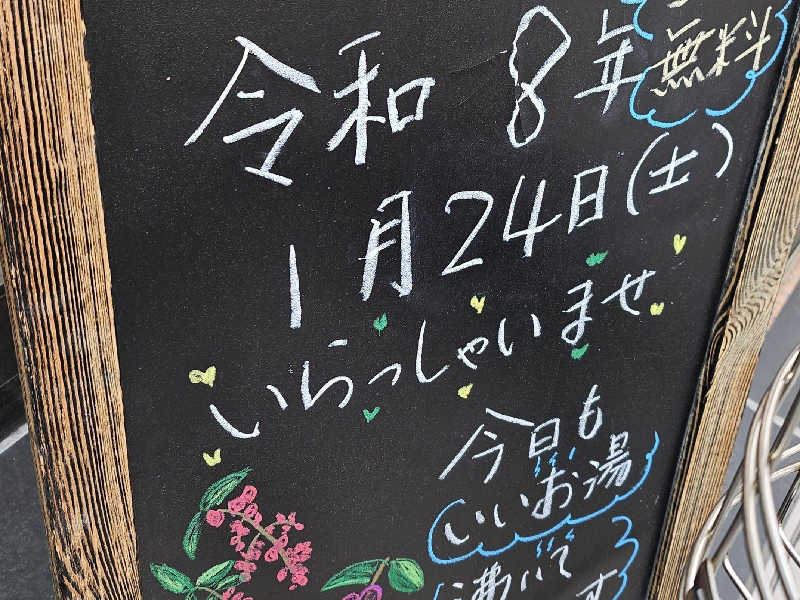 令和 8年
無料
1月24日(土)
いらっしゃいませ
今日も
いいお湯
沸いて
す